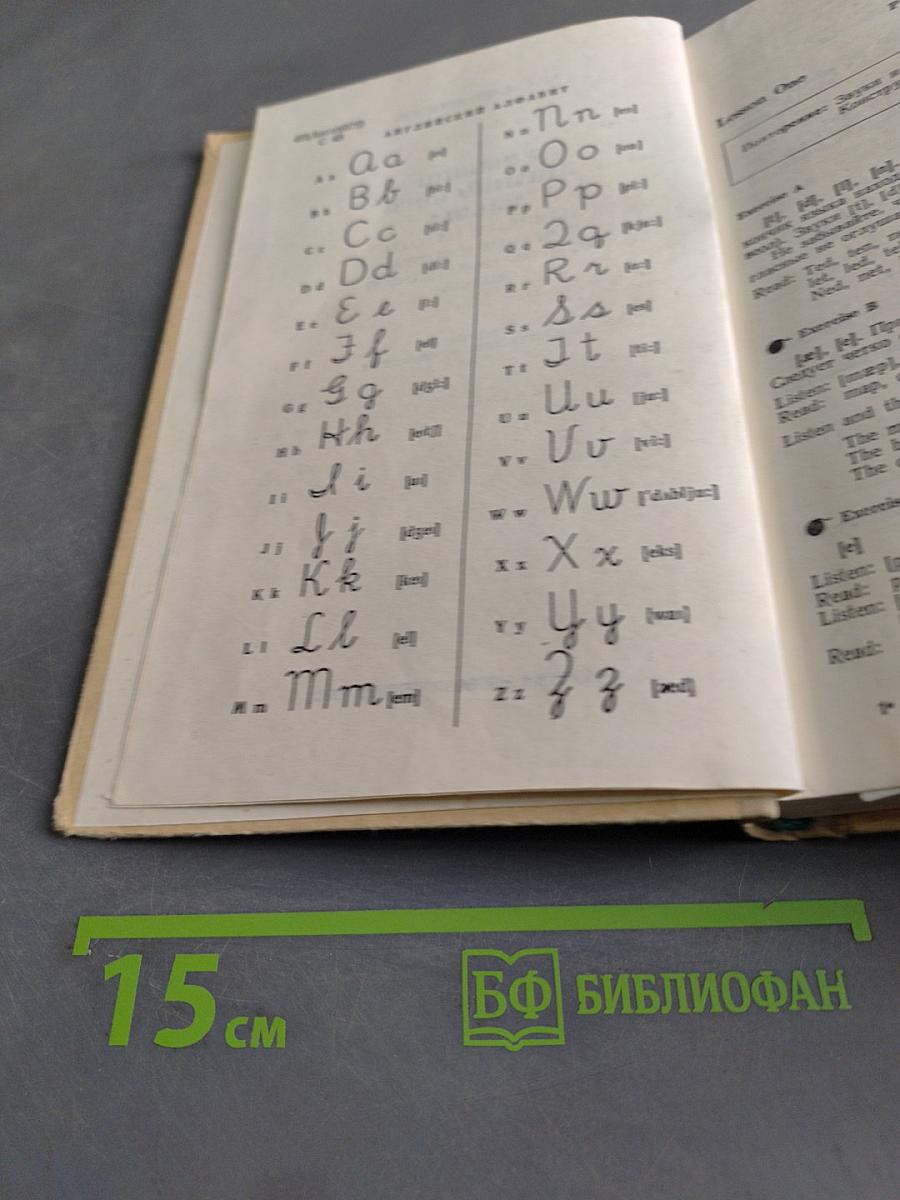 АНГЛИЙСКИЙ АЛФАВИТ
A a Aa [eɪ]
B b Bb [bi:]
C c Cc [si:]
D d Dd [di:]
E e Ee [i:]
F f Ff [ef]
G g Gg [dʒi:]
H h Hh [eɪtʃ]
I i Ii [aɪ]
J j Jj [dʒeɪ]
K k Kk [keɪ]
L l Ll [el]
M m Mm [em]
N n Nn [en]
O o Oo [ou]
P p Pp [pi:]
Q q Qq [kju:]
R r Rr [a:]
S s Ss [es]
T t Tt [ti:]
U u Uu [ju:]
V v Vv [vi:]
W w Ww ['dʌblju:]
X x Xx [eks]
Y y Yy [waɪ]
Z z Zz [zed]
Lesson One
Повторение: Звуки
Констру
Exercise A
[t], [d], [l], [n].
кончик языка наход
Звуки [t], [d]
Не забывайте,
гласное не оглуша
Read: Ted, ten,
let, led, tel
Ned, net,
Exercise B
[æ], [e]. Пр
Следует четко
Listen: [mæp],
Read: map,
Listen and th
The m
The b
The c
Exercis
[e]
Listen: [
Read:
Listen: [
Read:
1*
15 см
БФ БИБЛИОФАН